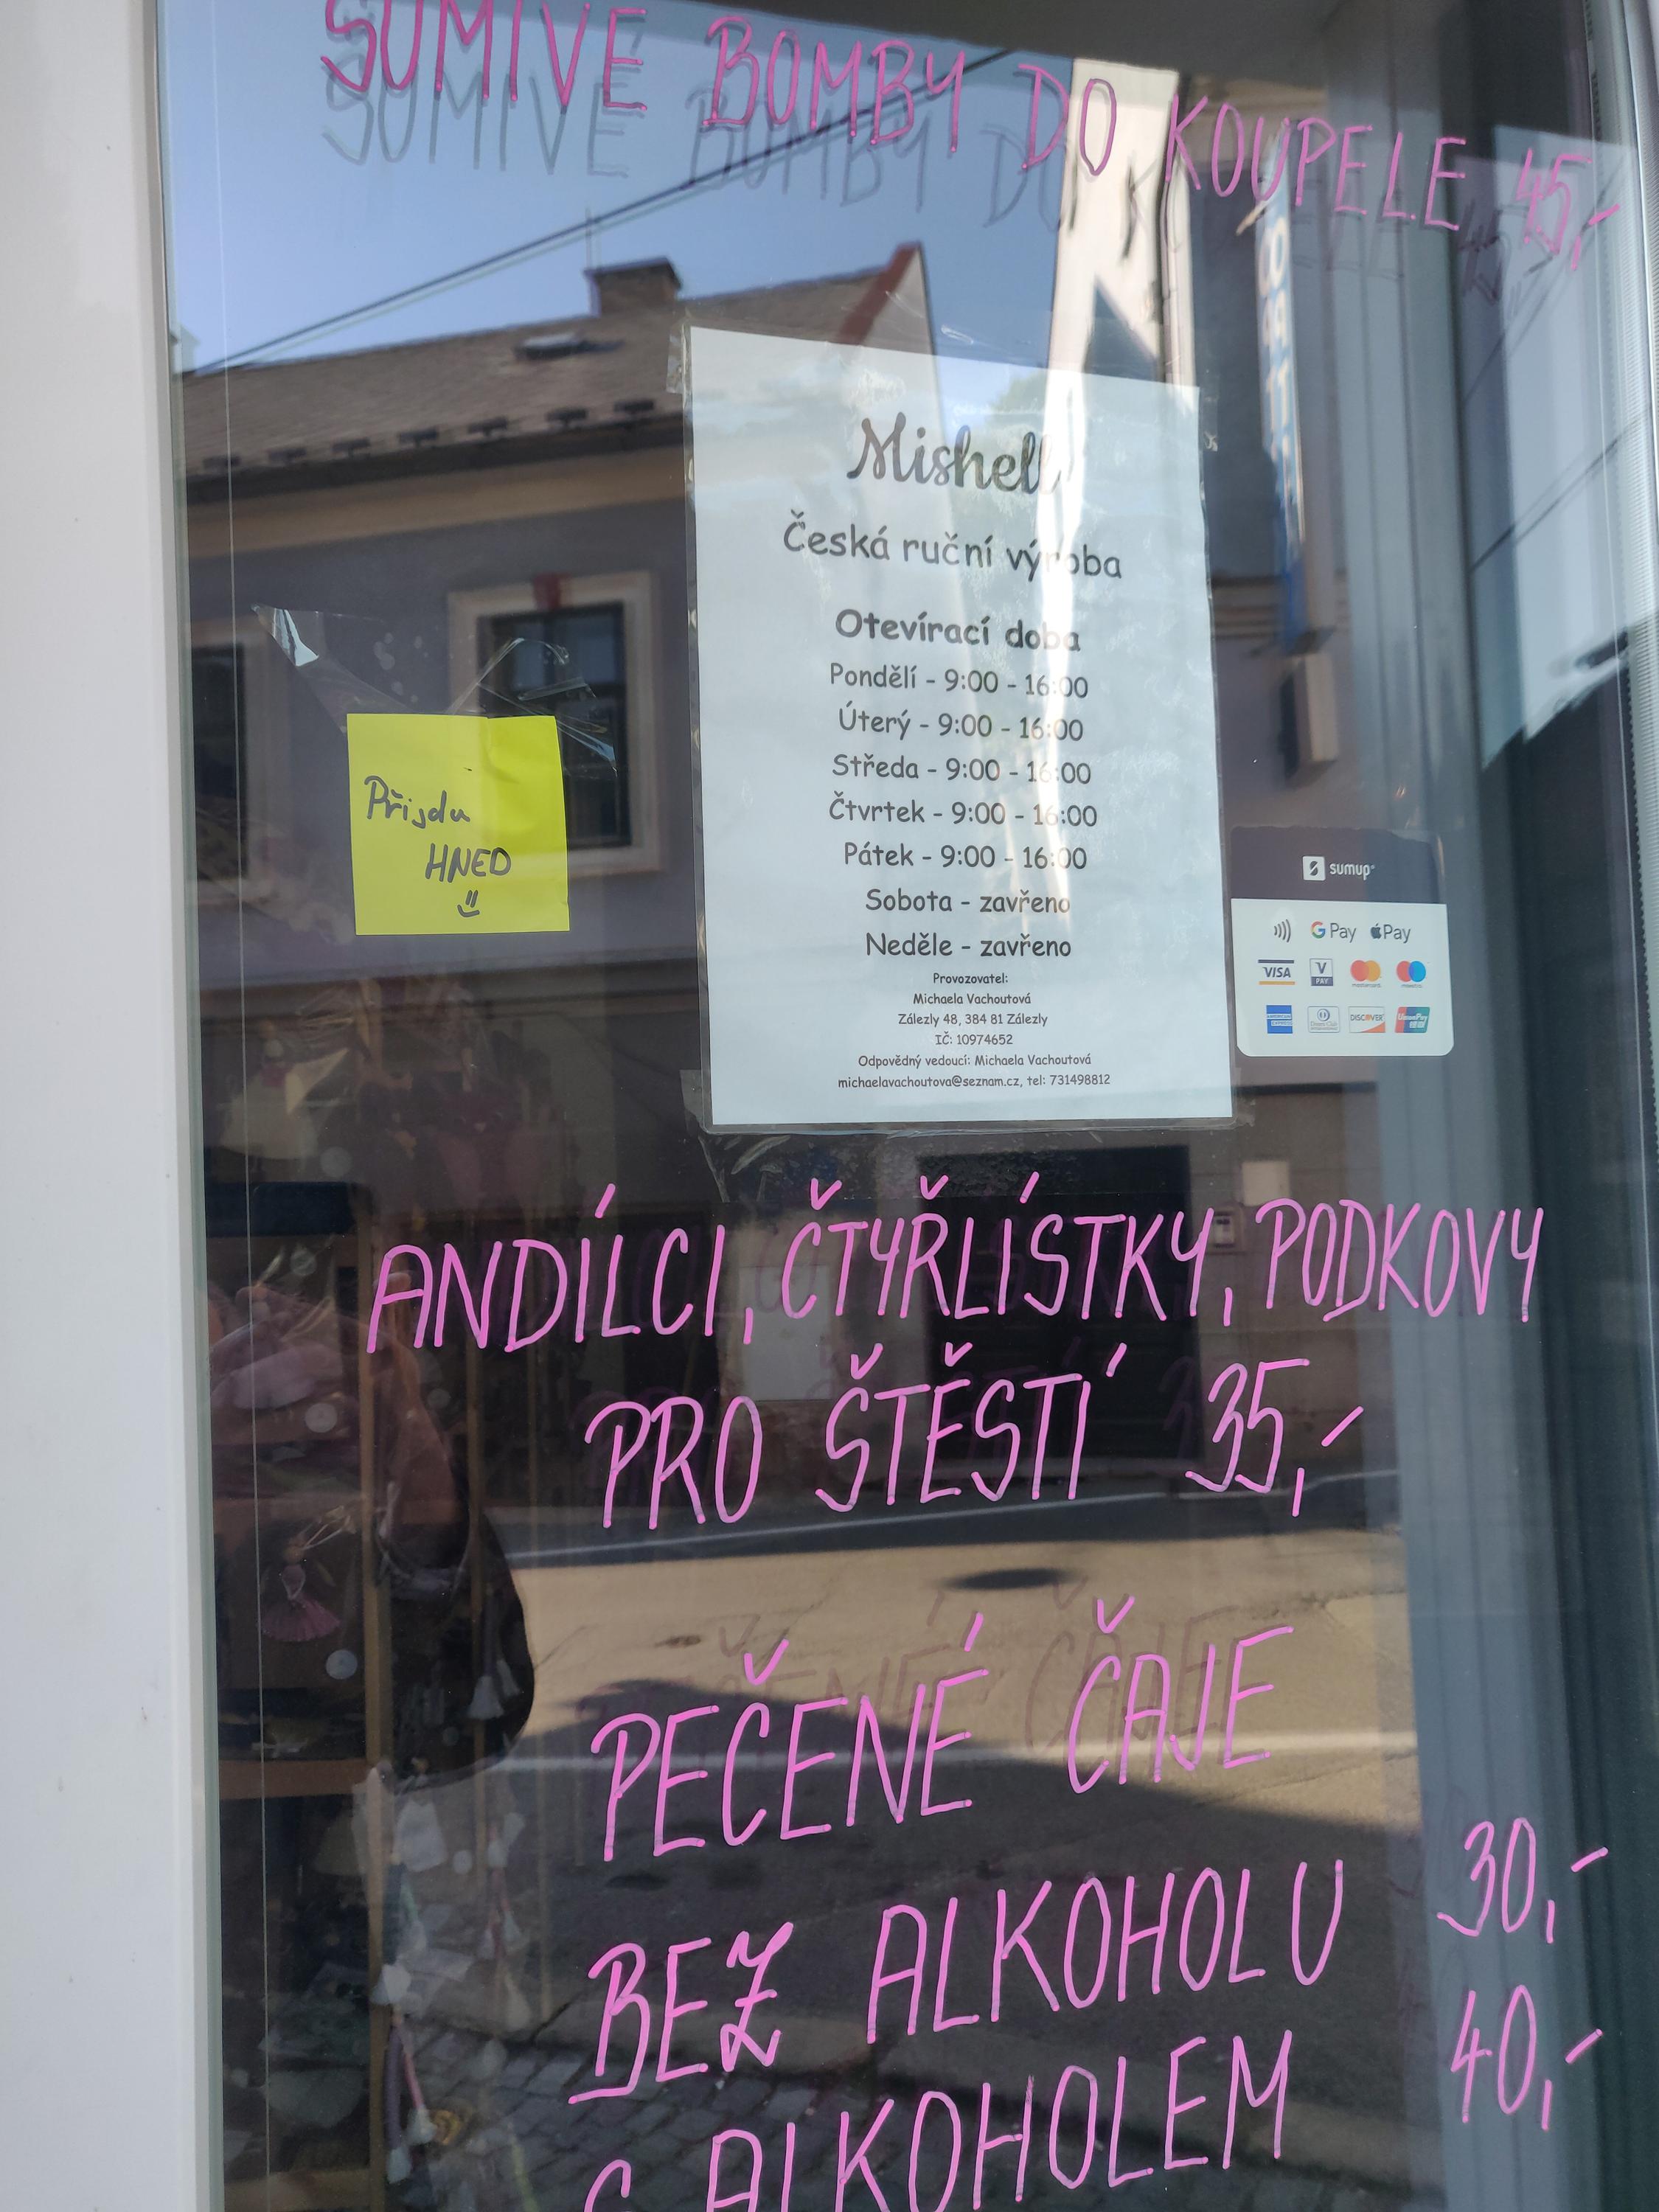 ŠUMIVÉ BOMBY DO KOUPELE 45,-
Mishell
Česká ruční výroba
Otevírací doba
Pondělí - 9:00 - 16:00
Úterý - 9:00 - 16:00
Středa - 9:00 - 16:00
Čtvrtek - 9:00 - 16:00
Pátek - 9:00 - 16:00
Sobota - zavřeno
Neděle - zavřeno
Provozovatel:
Michaela Vachoutová
Zálezly 48, 384 81 Zálezly
IČ: 10974652
Odpovědný vedoucí: Michaela Vachoutová
michaelavachoutova@seznam.cz, tel: 731498812
Přijdu
HNED
sumup
G Pay Pay
VISA V PAY mastercard maestro
AMERICAN EXPRESS Diners Club DISCOVER UnionPay
ANDÍLCI, ČTYŘLÍSTKY, PODKOVY
PRO ŠTĚSTÍ 35,-
PEČENÉ ČAJE
BEZ ALKOHOLU 30,-
S ALKOHOLEM 40,-